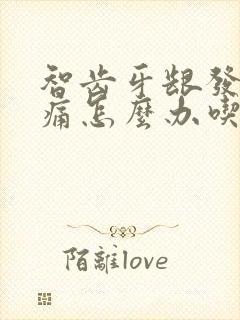 智齿牙龈發
痛怎麼办喫
陌離love